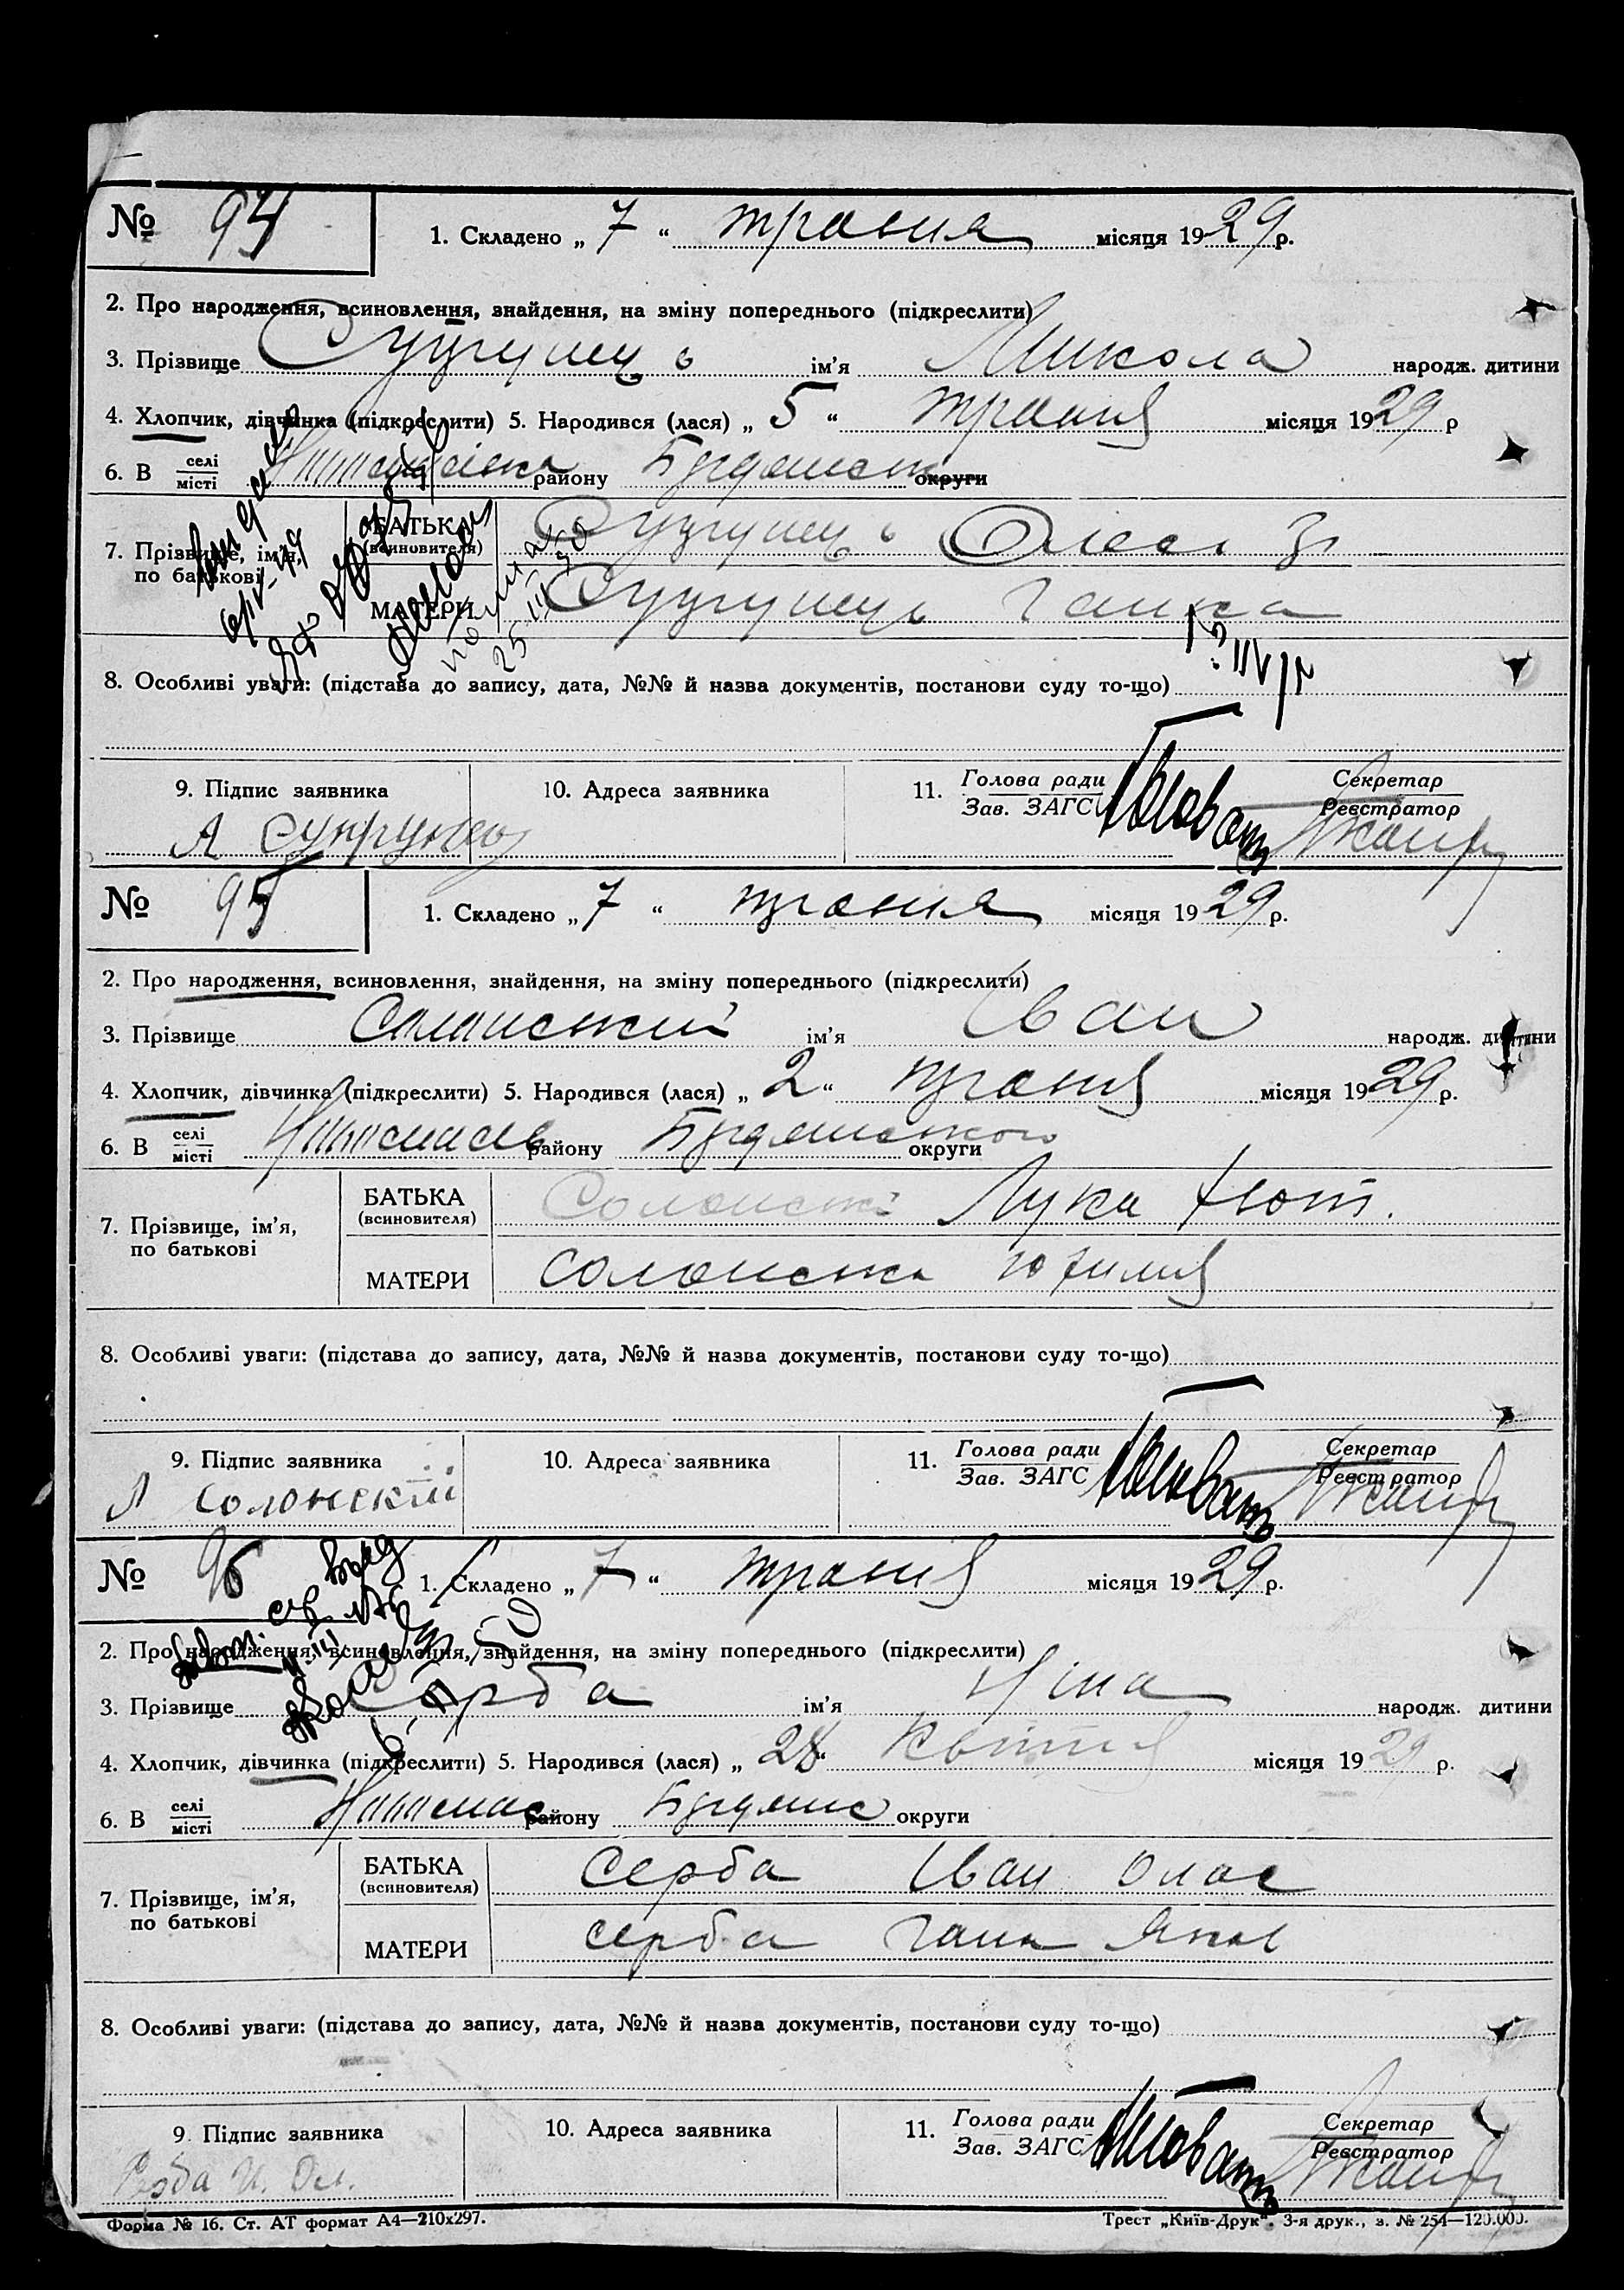 № 94
1. Складено „ 7 “ травня місяця 1929 р.
2. Про народження, всиновлення, знайдення, на зміну попереднього (підкреслити)
3. Прізвище ім'я Микола народж. дитини
4. Хлопчик, дівчинка (підкреслити) 5. Народився (лася) „ 5 “ травня місяця 1929 р
6. В селі/місті району округи
7. Прізвище, ім'я, по батькові
БАТЬКА (всиновителя)
МАТЕРИ Ганна
25 III 50
8. Особливі уваги: (підстава до запису, дата, №№ й назва документів, постанови суду то-що)
9. Підпис заявника 10. Адреса заявника 11. Голова ради/Зав. ЗАГС Секретар/Реєстратор
А Супрунец
№ 95
1. Складено „ 7 “ травня місяця 1929 р.
2. Про народження, всиновлення, знайдення, на зміну попереднього (підкреслити)
3. Прізвище Солонский ім'я Іван народж. дитини
4. Хлопчик, дівчинка (підкреслити) 5. Народився (лася) „ 2 “ травня місяця 1929 р.
6. В селі/місті району округи
7. Прізвище, ім'я, по батькові
БАТЬКА (всиновителя) Лука
МАТЕРИ Солонська Юхимия
8. Особливі уваги: (підстава до запису, дата, №№ й назва документів, постанови суду то-що)
9. Підпис заявника 10. Адреса заявника 11. Голова ради/Зав. ЗАГС Секретар/Реєстратор
Л Солонский
№ 96
1. Складено „ 7 “ травня місяця 1929 р.
2. Про народження, всиновлення, знайдення, на зміну попереднього (підкреслити)
3. Прізвище Серба ім'я Ніна народж. дитини
4. Хлопчик, дівчинка (підкреслити) 5. Народився (лася) „ 28 “ Квітня місяця 1929 р.
6. В селі/місті району округи
7. Прізвище, ім'я, по батькові
БАТЬКА (всиновителя) Серба Іван Олас
МАТЕРИ серба Ганна Яков
8. Особливі уваги: (підстава до запису, дата, №№ й назва документів, постанови суду то-що)
9. Підпис заявника 10. Адреса заявника 11. Голова ради/Зав. ЗАГС Секретар/Реєстратор
Серба И. Ол.
Форма № 16. Ст. АТ формат А4—210х297. Трест „Київ-Друк“. 3-я друк., з. № 254—120.000.